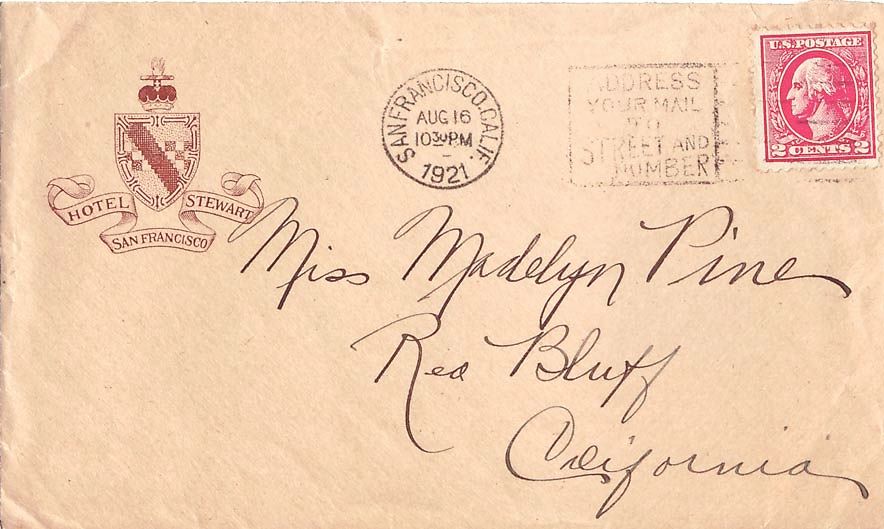 HOTEL STEWART
SAN FRANCISCO
SAN FRANCISCO, CALIF.
AUG 16
10 30 PM
1921
ADDRESS
YOUR MAIL
TO
STREET AND
NUMBER
U.S. POSTAGE
2 CENTS 2
Miss Madelyn Pine
Red Bluff
California